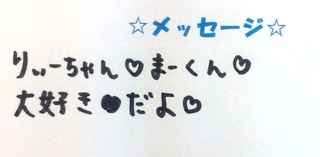 ☆メッセージ☆
りぃーちゃん♡まーくん♡
大好き♥だよ♡